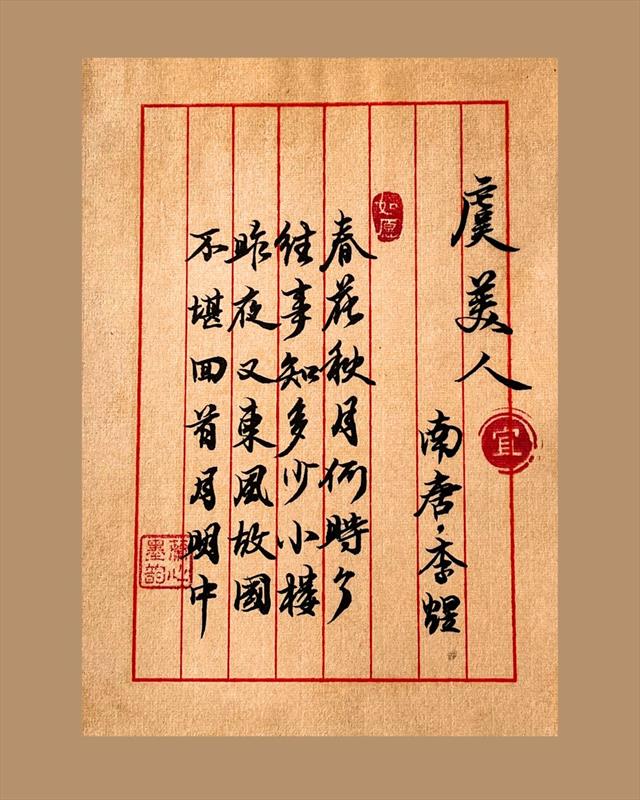 虞美人
宜
南唐·李煜
如愿
春花秋月何时了
往事知多少小楼
昨夜又東風故國
不堪回首月明中
蘭心
墨韵